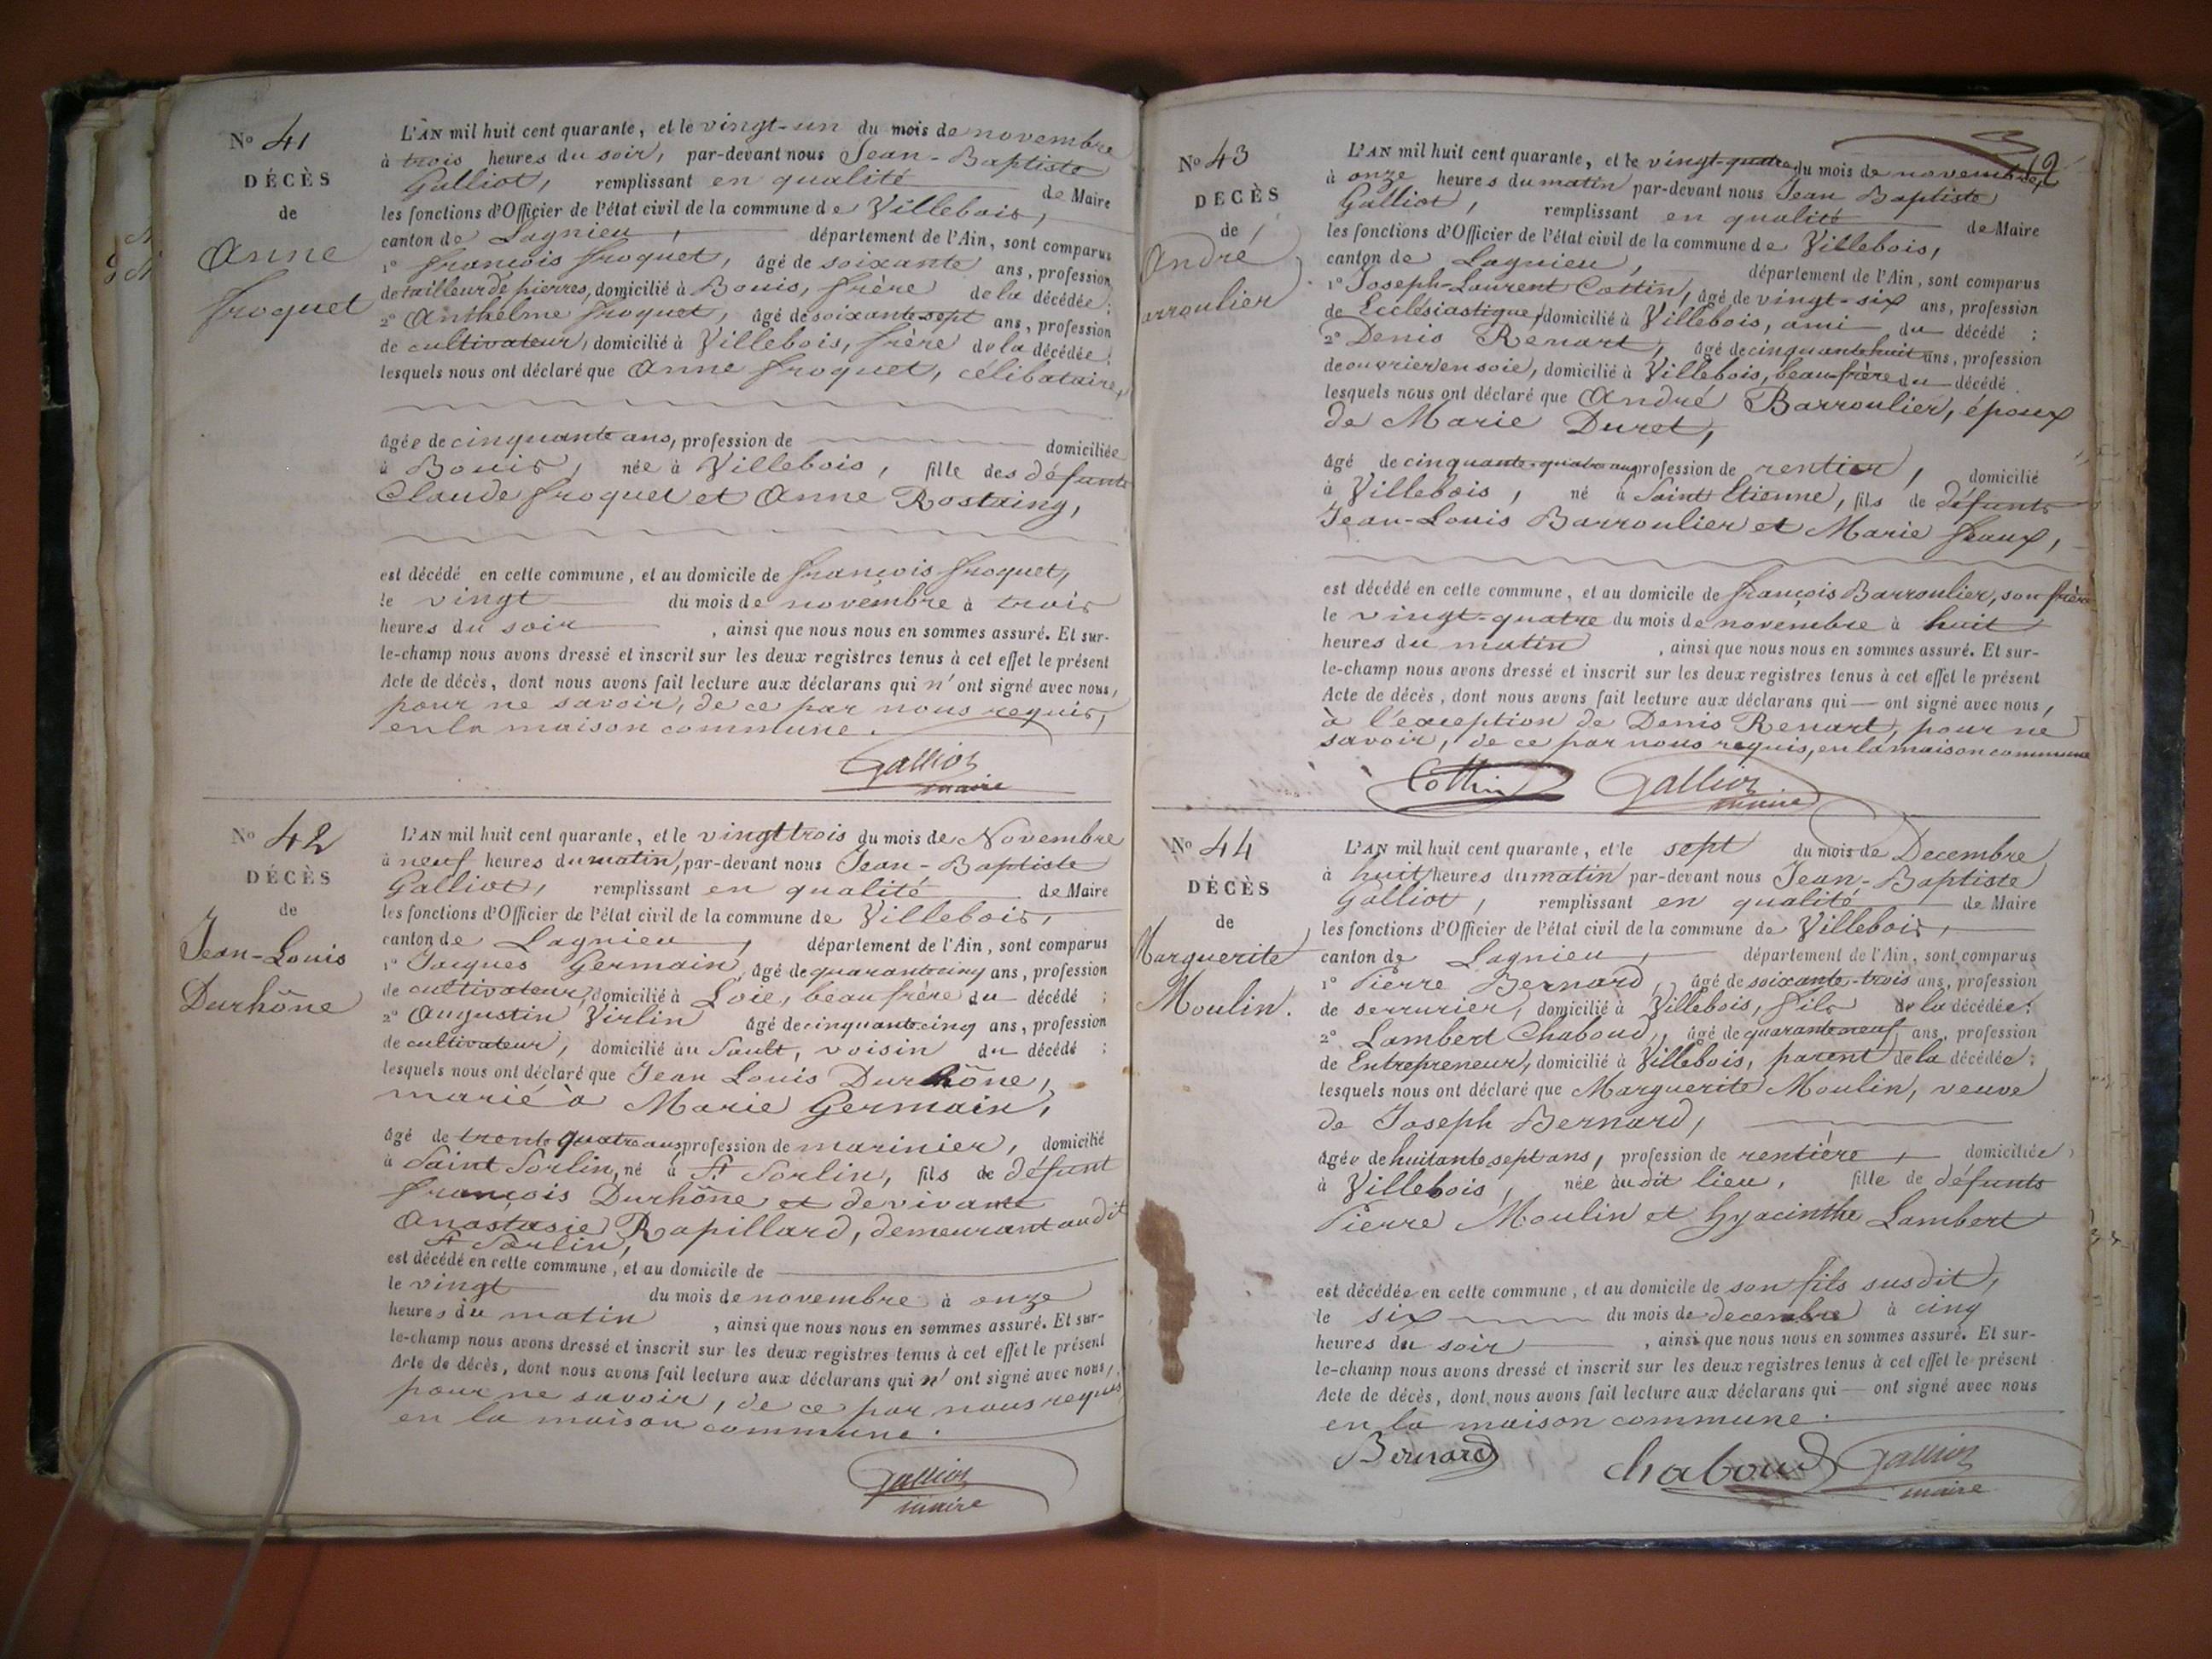 Nº 41
DÉCÈS
de
Anne
Froquet
L'AN mil huit cent quarante, et le vingt-un du mois de novembre
à trois heures du soir, par-devant nous Jean-Baptiste
Galliot, remplissant en qualité de Maire
les fonctions d'Officier de l'état civil de la commune de Villebois,
canton de Lagnieu, département de l'Ain, sont comparus
1º François Froquet, âgé de soixante ans, profession
de tailleur de pierres, domicilié à Bouis, frère de la décédée;
2º Anthelme Froquet, âgé de soixante-sept ans, profession
de cultivateur, domicilié à Villebois, frère de la décédée;
lesquels nous ont déclaré que Anne Froquet, célibataire,
âgée de cinquante ans, profession de domiciliée
à Bouis, née à Villebois, fille des défunts
Claude Froquet et Anne Rostaing,
est décédé en cette commune, et au domicile de François Froquet,
le vingt du mois de novembre à trois
heures du soir, ainsi que nous nous en sommes assuré. Et sur-
le-champ nous avons dressé et inscrit sur les deux registres tenus à cet effet le présent
Acte de décès, dont nous avons fait lecture aux déclarans qui n'ont signé avec nous,
pour ne savoir, de ce par nous requis,
en la maison commune.
Galliot
maire
Nº 42
DÉCÈS
de
Jean-Louis
Durhône
L'AN mil huit cent quarante, et le vingt trois du mois de Novembre
à neuf heures du matin, par-devant nous Jean-Baptiste
Galliot, remplissant en qualité de Maire
les fonctions d'Officier de l'état civil de la commune de Villebois,
canton de Lagnieu, département de l'Ain, sont comparus
1º Jacques Germain, âgé de quarante cinq ans, profession
de cultivateur, domicilié à Loie, beau frère du décédé;
2º Augustin Virlin âgé de cinquante cinq ans, profession
de cultivateur, domicilié au Sault, voisin du décédé;
lesquels nous ont déclaré que Jean Louis Durhône,
marié à Marie Germain,
âgé de trente quatre ans profession de marinier, domicilié
à Saint Sorlin, né à St Sorlin, fils de défunt
François Durhône et de vivante
Anastasie Rapillard, demeurant audit
St Sorlin,
est décédé en cette commune, et au domicile de
le vingt du mois de novembre à onze
heures du matin, ainsi que nous nous en sommes assuré. Et sur-
le-champ nous avons dressé et inscrit sur les deux registres tenus à cet effet le présent
Acte de décès, dont nous avons fait lecture aux déclarans qui n'ont signé avec nous,
pour ne savoir, de ce par nous requis
en la maison commune.
Galliot
maire
12
Nº 43
DECÈS
de
André
Barroulier
L'AN mil huit cent quarante, et le vingt-quatre du mois de novembre
à onze heures du matin par-devant nous Jean Baptiste
Galliot, remplissant en qualité de Maire
les fonctions d'Officier de l'état civil de la commune de Villebois,
canton de Lagnieu, département de l'Ain, sont comparus
1º Joseph-Laurent Cottin, âgé de vingt-six ans, profession
de Ecclésiastique, domicilié à Villebois, ami du décédé;
2º Denis Renart, âgé de cinquante huit ans, profession
de ouvrier en soie, domicilié à Villebois, beau-frère du décédé
lesquels nous ont déclaré que André Barroulier, époux
de Marie Duret,
âgé de cinquante-quatre ans profession de rentier, domicilié
à Villebois, né à Saint Etienne, fils de défunts
Jean-Louis Barroulier et Marie Feaux,
est décédé en cette commune, et au domicile de François Barroulier, son frère
le vingt-quatre du mois de novembre à huit
heures du matin, ainsi que nous nous en sommes assuré. Et sur-
le-champ nous avons dressé et inscrit sur les deux registres tenus à cet effet le présent
Acte de décès, dont nous avons fait lecture aux déclarans qui — ont signé avec nous,
à l'exception de Denis Renart, pour ne
savoir, de ce par nous requis, en la maison commune
Cottin Galliot
maire
Nº 44
DÉCÈS
de
Marguerite
Moulin.
L'AN mil huit cent quarante, et le sept du mois de Decembre
à huit heures du matin par-devant nous Jean-Baptiste
Galliot, remplissant en qualité de Maire
les fonctions d'Officier de l'état civil de la commune de Villebois,
canton de Lagnieu, département de l'Ain, sont comparus
1º Pierre Bernard, âgé de soixante-trois ans, profession
de serrurier, domicilié à Villebois, fils de la décédée;
2º Lambert Chaboud, âgé de quarante neuf ans, profession
de Entrepreneur, domicilié à Villebois, parent de la décédée;
lesquels nous ont déclaré que Marguerite Moulin, veuve
de Joseph Bernard,
âgée de huitante sept ans, profession de rentière, domiciliée
à Villebois, née audit lieu, fille de défunts
Pierre Moulin et Hyacinthe Lambert
est décédée en cette commune, et au domicile de son fils susdit,
le six du mois de decembre à cinq
heures du soir, ainsi que nous nous en sommes assuré. Et sur-
le-champ nous avons dressé et inscrit sur les deux registres tenus à cet effet le présent
Acte de décès, dont nous avons fait lecture aux déclarans qui — ont signé avec nous
en la maison commune.
Bernard Chaboud Galliot
maire